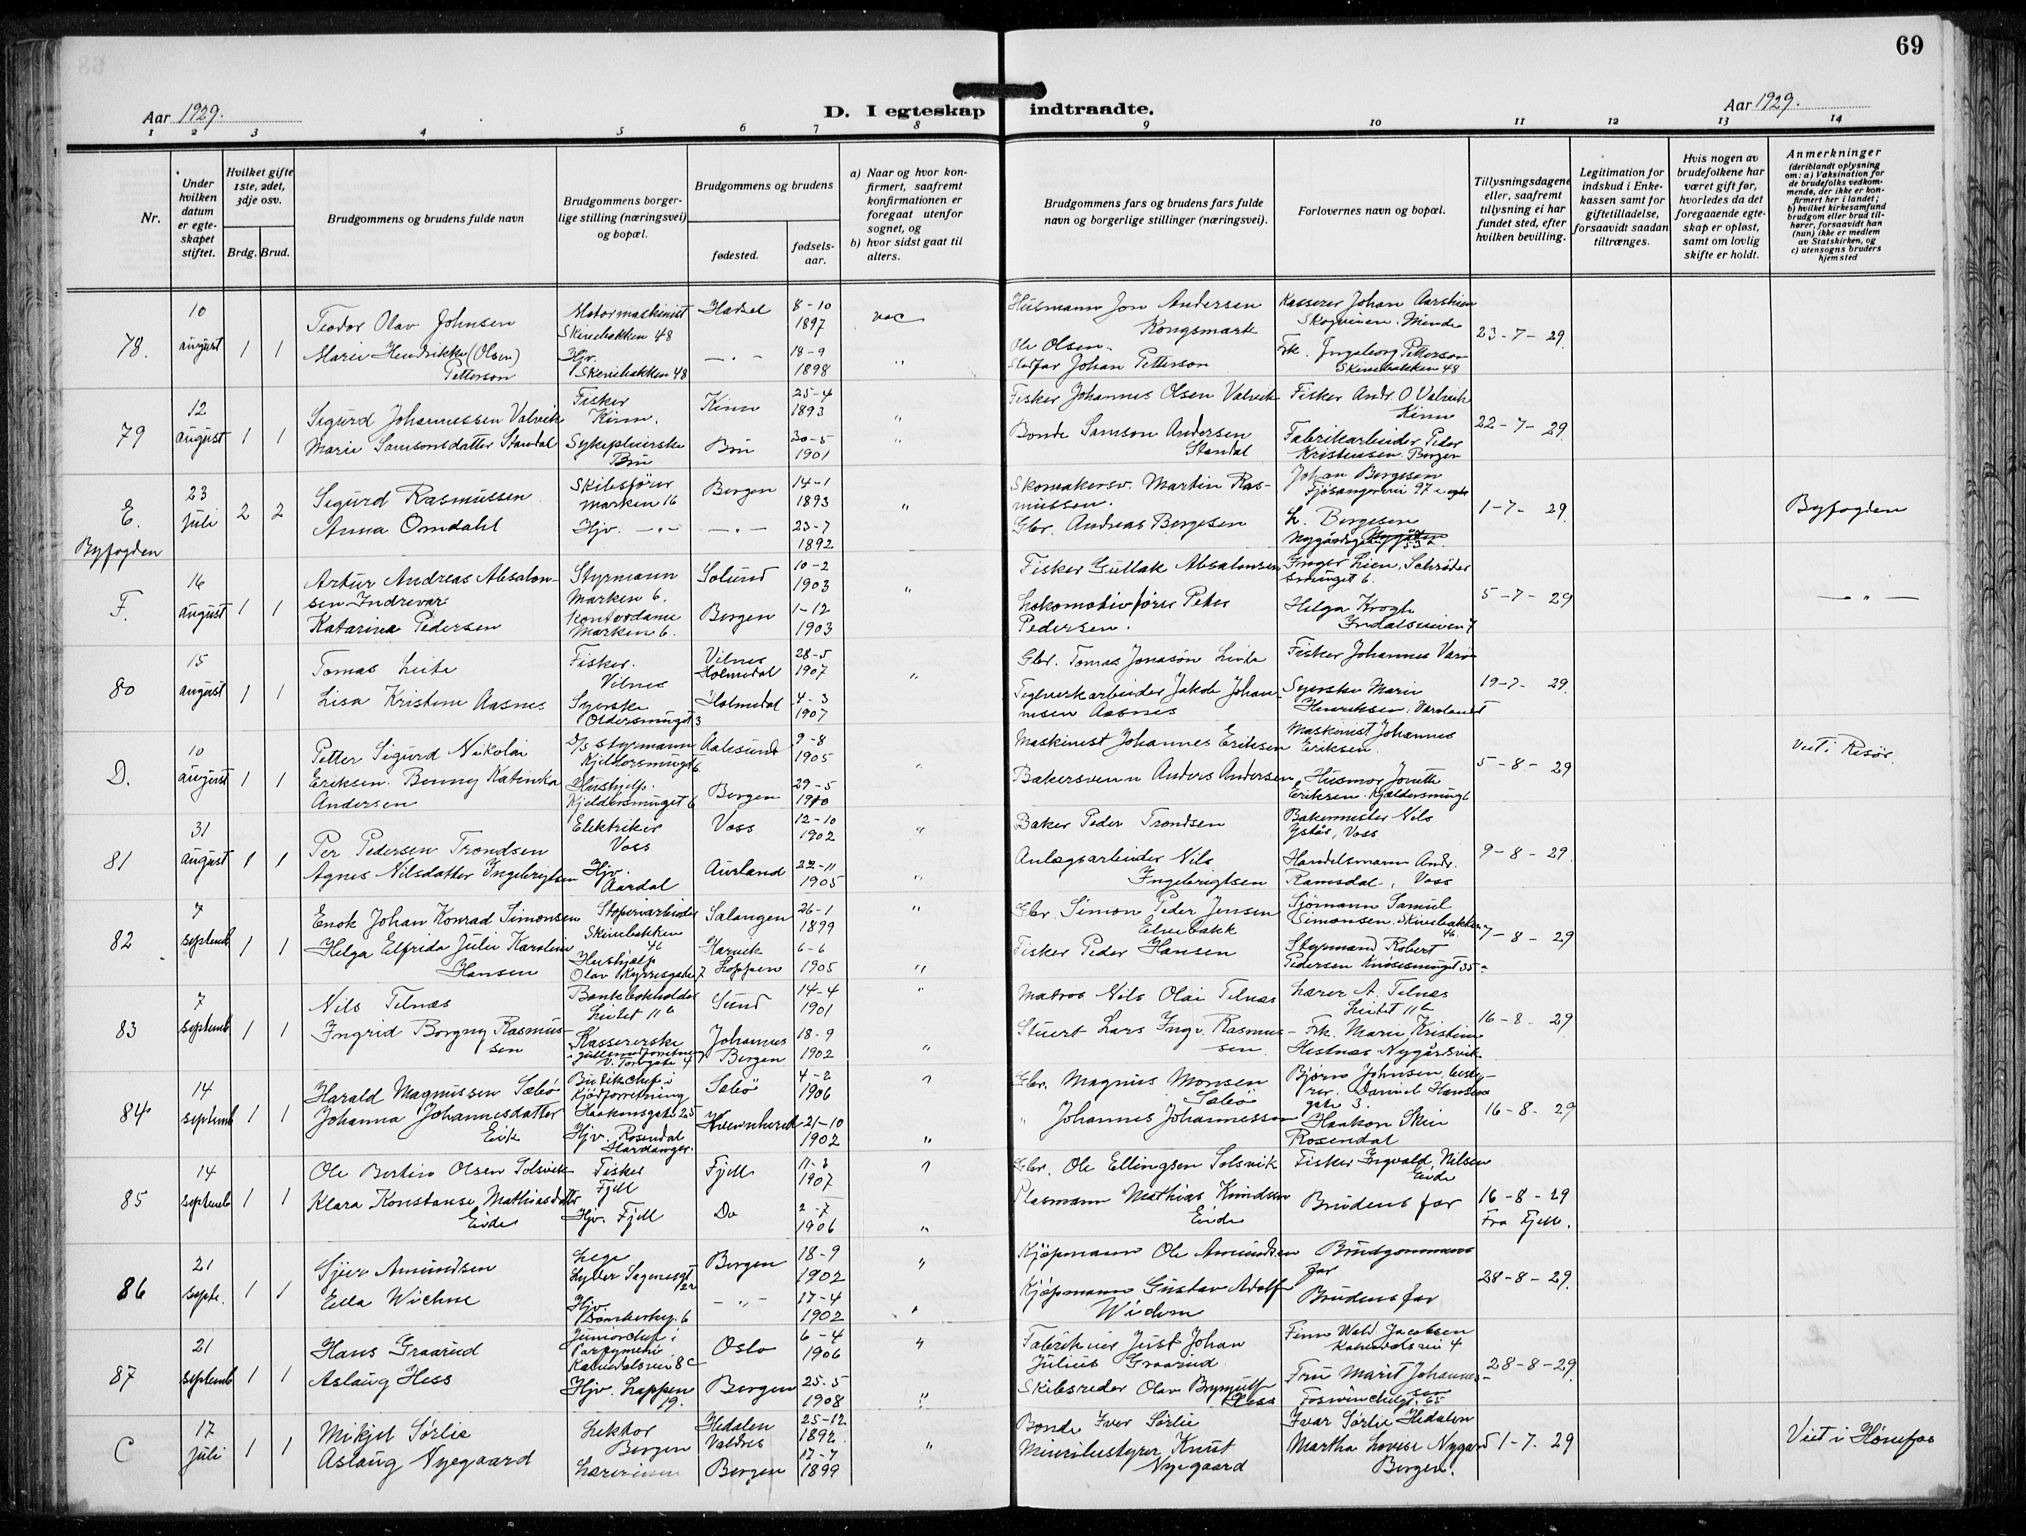 69
Aar 1929.
D. I egteskap indtraadte.
Aar 1929.
1 2 3 4 5 6 7 8 9 10 11 12 13 14
Nr.
Under hvilken datum er egteskapet stiftet.
Hvilket gifte 1ste, 2det, 3dje osv.
Brdg. Brud.
Brudgommens og brudens fulde navn
Brudgommens borgerlige stilling (næringsvei) og bopæl.
Brudgommens og brudens
fødested.
fødselsaar.
a) Naar og hvor konfirmert, saafremt konfirmationen er foregaat utenfor sognet, og
b) hvor sidst gaat til alters.
Brudgommens fars og brudens fars fulde navn og borgerlige stillinger (næringsvei).
Forlovernes navn og bopæl.
Tillysningsdagene eller, saafremt tillysning ei har fundet sted, efter hvilken bevilling.
Legitimation for indskud i Enkekassen samt for giftetilladelse, forsaavidt saadan tiltrænges.
Hvis nogen av brudefolkene har været gift før, hvorledes da det foregaaende egteskap er opløst, samt om lovlig skifte er holdt.
Anmerkninger
(deriblandt oplysning om: a) Vaksination for de brudefolks vedkommende, der ikke er konfirmert her i landet; b) hvilket kirkesamfund brudgom eller brud tilhører, forsaavidt han (hun) ikke er medlem av Statskirken, og c) utensogns bruders hjemsted
78. 10 august 1 1 Teodor Olav Johnsen Motormaskinist Skivebakken 48 Hadsel 8-10 1897 vac Husmann Jon Andersen Kongsmark Kasserer Johan 23-7-29.
Marie Hendrikke (Olsen) Petterson Hjv. Skivebakken 48 —"— 18-9 1898 " Ole Olsen. Stedfar Johan Petterson Frk. Ingeborg Petterson Skivebakken 48
79 12 august 1 1 Sigurd Johannessen Valvik Fisker Kinn. Kinn 25-4 1893 " Fisker Johannes Olsen Valvik Fisker Andr. O Valvik Kinn 22-7-29.
Marie Samsonsdatter Standal Sykepleierske Bru Bru 30-5 1901 " Bonde Samson Andersen Standal Fabrikarbeider Peder Kristensen. Bergen
E. Byfogden 23 juli 2 2 Sigurd Rasmussen Skibsfører Marken 16 Bergen 14-1 1893 " Skomakersv. Martin Rasmussen Johan Bergesen Fjøsangervei 97 1-7-29. Byfogden
Anna Omdahl Hjv. —"— —"— 23-7 1892 Gbr. Andreas Bergesen L. Bergesen
F. 16 august 1 1 Artur Andreas Absalonsen Indrevær Styrmann Marken 6. Solund 10-2 1903 " Fisker Gullak Absalonsen Inger Lien, Schrødersmuget 6. 5-7-29 —"—
Katarina Pedersen Kontordame Marken 6. Bergen 1-12 1903 Lokomotivfører Peter Pedersen. Helga Krogh
80 15 august 1 1 Tomas Leite Fisker. Vilnes Vilnes Holmedal 28-5 1907 " Gbr. Tomas Jonasøn Leite Fisker Johannes 19-7-29.
Lisa Kristine Aasnes Syerske Oldersmuget 3 Holmedal 4-3 1907 Teglverkarbeider Jakob Johannesen Aasnes Syerske Marie Henriksen.
D. 10 august 1 1 Petter Sigurd Nikolai Eriksen. D/S Styrmann Kjeldersmuget 6 Aalesund 9-8 1905 " Maskinist Johannes Eriksen Maskinist Johannes Eriksen. 5-8-29 Viet i Risør.
Benny Katinka Andersen Hushjelp. Kjeldersmuget 6 Bergen 29-5 1910 Bakersvenn Anders Andersen Husmor Eriksen.
81 31 august 1 1 Per Pedersen Trondsen Elektriker Voss Voss 12-10 1902 " Baker Peder Trondsen Bakermester Nils Ystås, Voss 9-8-29.
Agnes Nilsdatter Ingebrigtsen Hjv. Aardal Aurland 22-11 1905 " Anlægsarbeider Nils Ingebrigtsen Handelsmann Andr. Ramsdal, Voss
82 7 septemb 1 1 Enok Johan Konrad Simonsen Støperiarbeider Skivebakken 46 Salangen 26-1 1899 " Gbr. Simon Peder Jensen Elvebakk Sjømann Samuel Simonsen, Skivebakken 46. 7-8-29
Helga Elfrida Julie Karoline Hansen Hushjelp Olav Kyrresgate 7 Loppen 6-6 1905 " Fisker Peder Hansen Styrmand Robert Pedersen
83 7 septemb 1 1 Nils Telnæs Bankbokholder Leitet 11b Sund 14-4 1901 " Matros Nils Olai Telnæs Lærer A. Telnæs Leitet 11b 16-8-29.
Ingrid Borgny Rasmussen Kassererske Johannes Bergen 18-9 1902 " Stuert Lars Ingv. Rasmussen Frk. Marie Kristine Hestnes Nygårdsvik.
84 14 septemb 1 1 Harald Magnussen Sæbø Butikchef i Kjødforretning Haakonsgate 25 Sæbø 4-2 1906 " Gbr. Magnus Monsen Sæbø Bjørn Johnsen, Daniel Hansens gate 3. 16-8-29
Johanna Johannesdatter Eik Hjv. Rosendal Hardanger. Kvinnherad 21-10 1902 " " Johannes Johannesson Haakon Skei Rosendal
85 14 septemb 1 1 Ole Bertin Olsen Solsvik Fisker Fjell Fjell 11-2 1907 " Gbr. Ole Ellingsen Solsvik Fisker Ingvald Nilsen Eide 16-8-29 Fra Fjell.
Klara Konstanse Mathiasdatter Eide Hjv. Fjell Do 2-7 1906 " Plasmann Mathias Knudsen Eide Brudens far
86 21 septe. 1 1 Sjur Amundsen Lege Lyder Sagensgt 12a Bergen 18-9 1902 " Kjøpmann Ole Amundsen Brudgommens far 28-8-29.
Ella Wichne Hjv. 6 —"— 17-4 1902 " Kjøpmann Gustav Adolf Brudens far
87 21 septemb 1 1 Hans Graarud Juniorchef i Kalvedalsvei 8c Oslo 6-4 1906 " Just Johan Julius Graarud Finn Wald. Jacobsen Kalvedalsvei 4 28-8-29.
Aslaug Hess Hjv. Lappen 19. Bergen 25-5 1908 " Skibsreder Olav Brynjulf Hess Fru Marit Johannessen 65
C 17 juli 1 1 Mikjel Sørlie Lektor Bergen Hedalen Valdres 25-12 1892 " Bonde Iver Sørlie Ivar Sørlie Hedalen 1-7-29 Viet i Hønefos
Aslaug Nyegaard Lærerinne Bergen 17-7 1899 Knut Nyegaard Martha Lovise Nygard Bergen.